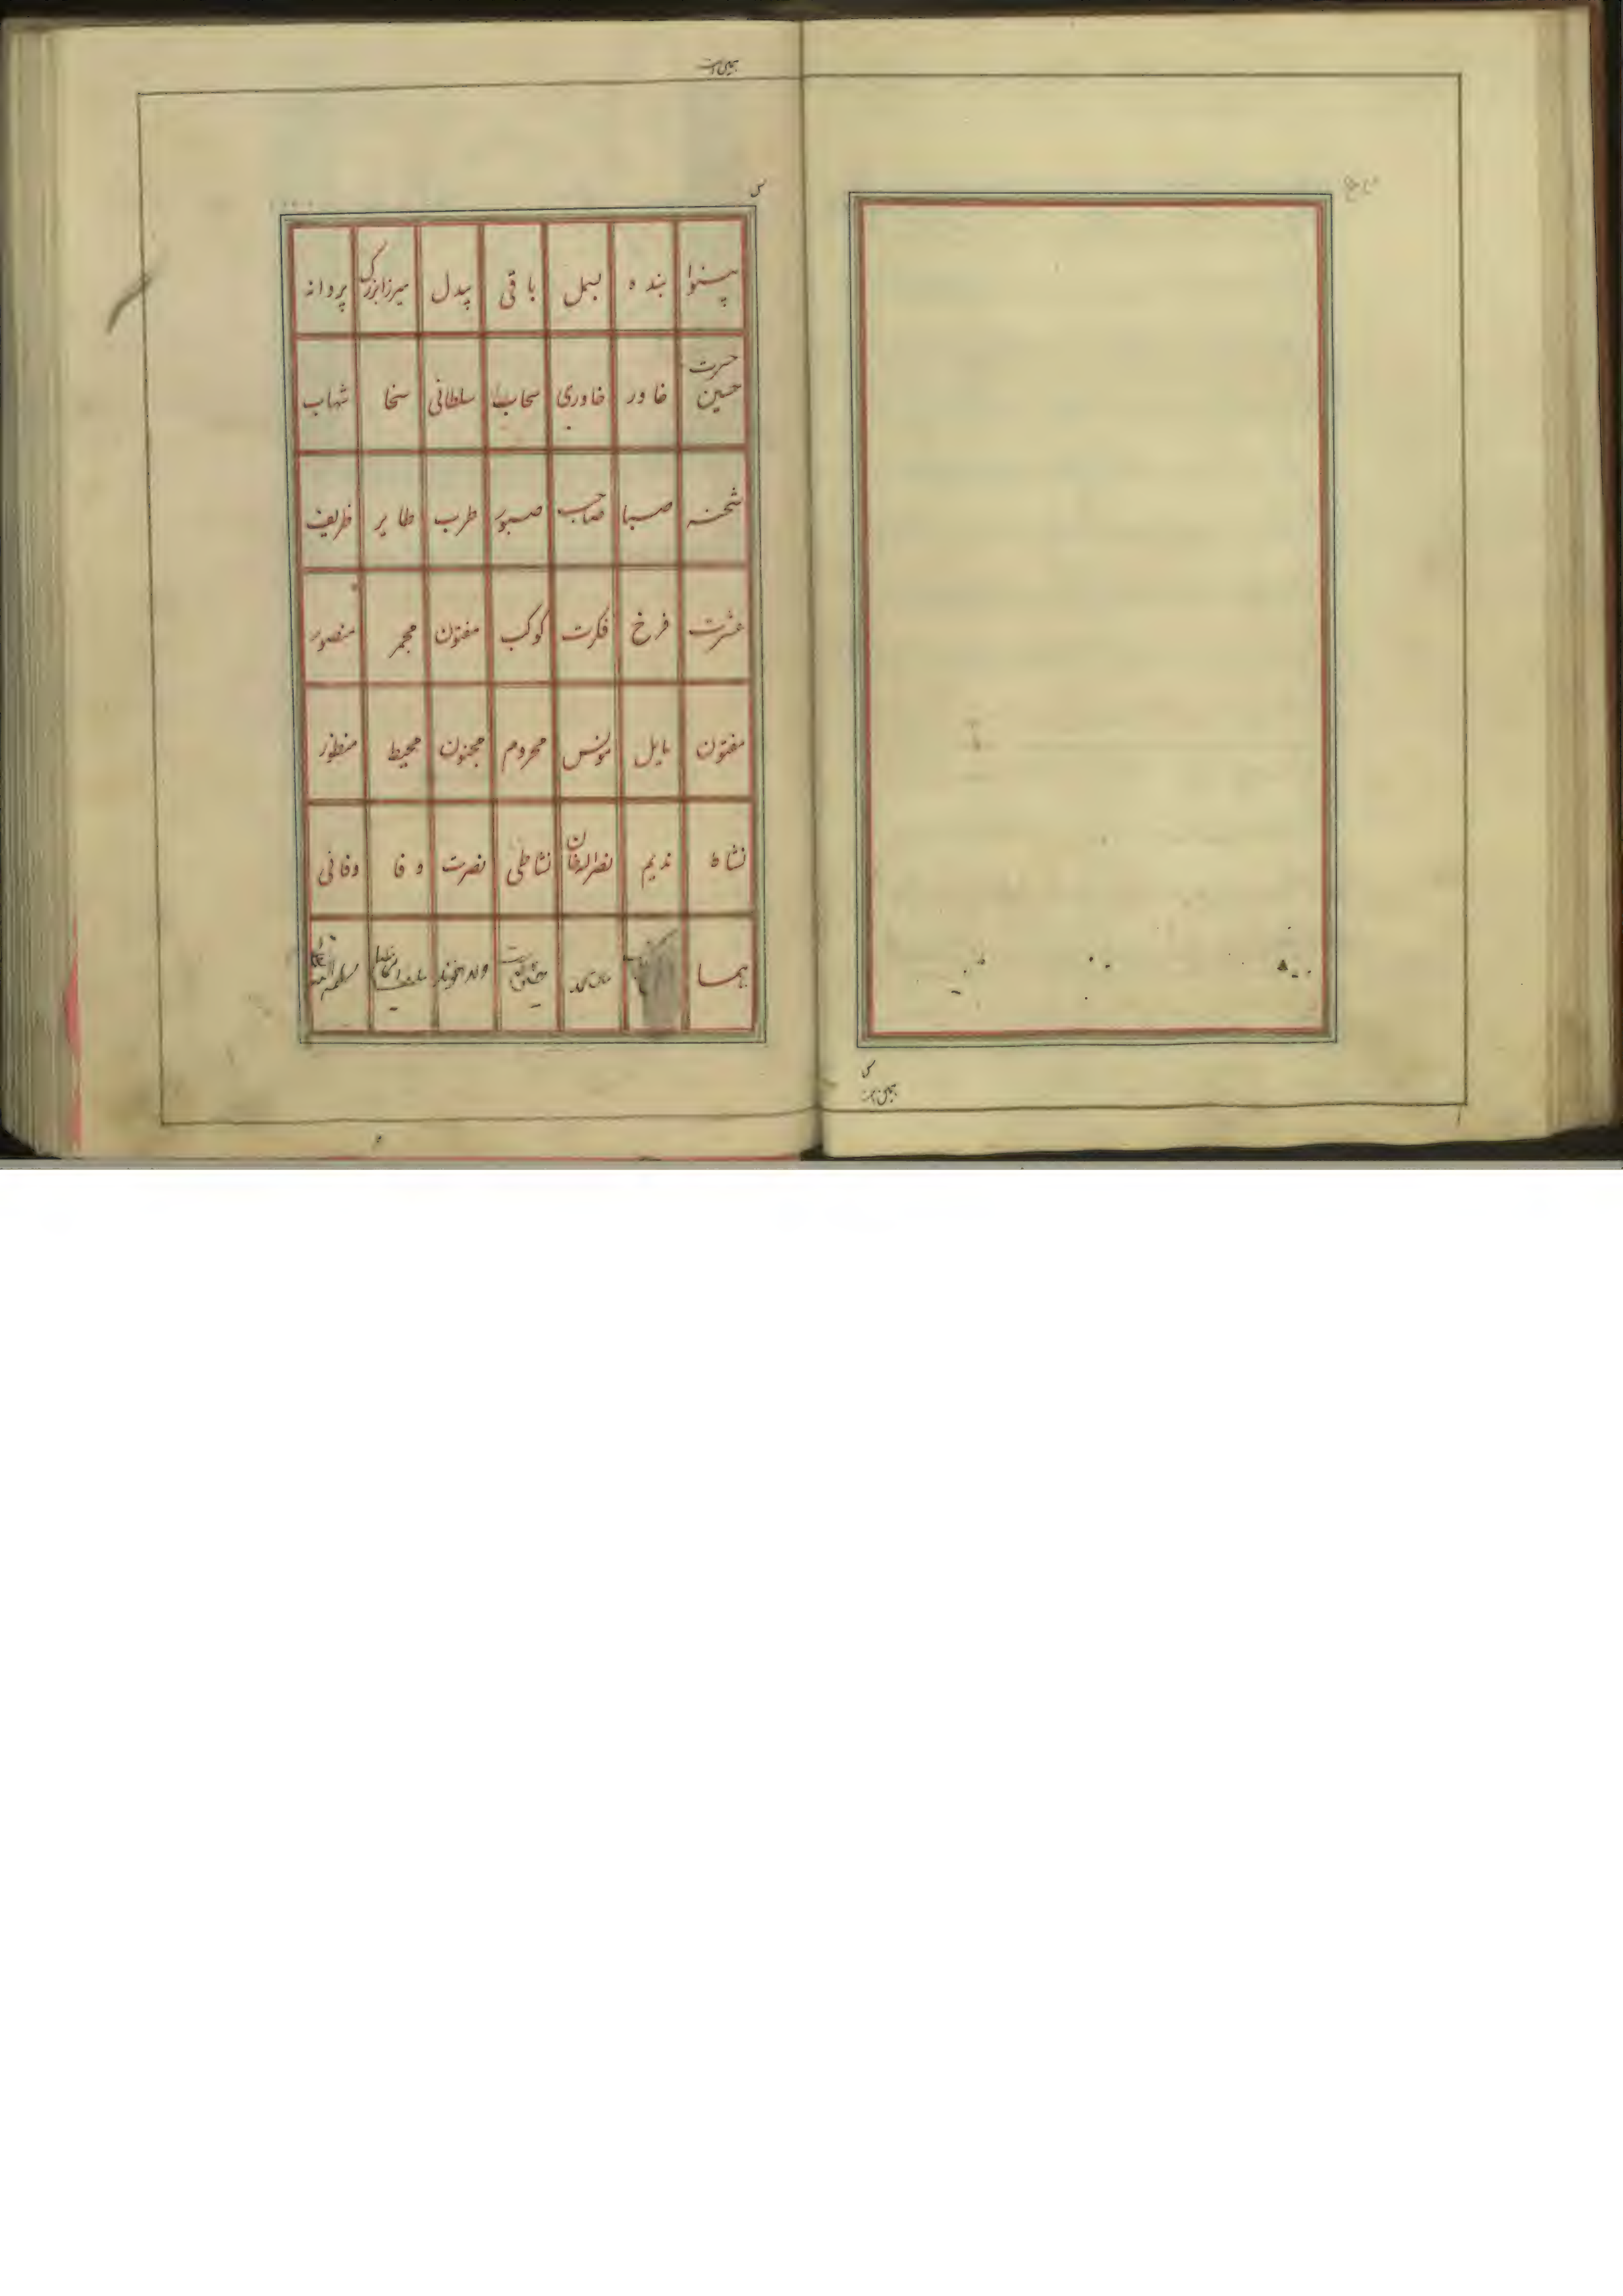 بینوا بنده بسمل باقی بیدل میرزا بزرگ پروانه
حسرت
حسین خاور خاوری سحاب سلطانی سخا شهاب
شحنه صبا صاحب صبور طرب طایر ظریف
عشرت فرخ فکرت کوکب مفتون مجمر منصور
مفتون مایل مونس محروم مجنون محیط منظور
نشاط ندیم نصراله خان نشاطی نصرت وفا وفائی
هما